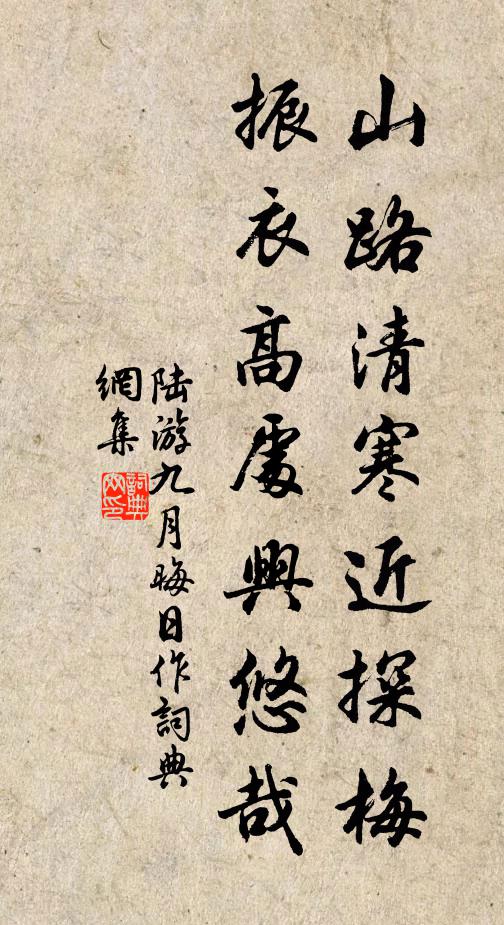 山路清寒近探梅
振衣高處興悠哉
陆游九月晦日作詞典
網集
詞典網印